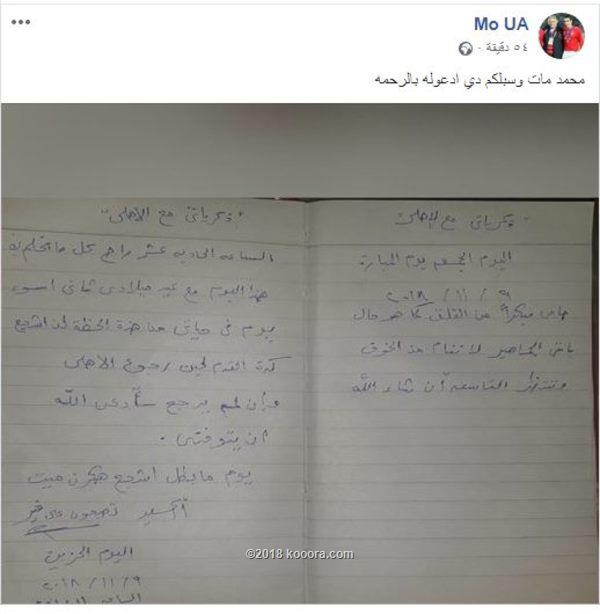 Mo UA
٥٤ دقيقة ·
محمد مات وسبلكم دي ادعوله بالرحمه
"ذكرياتى مع الأهلى"
اليوم الجمعه يوم المباراة
٢٠١٨ / ١١ / ٩
من القلق كما هو حال
باقى الجماهير لا تنام من الخوف
وننتظر التاسعه أن شاء الله
"ذكرياتى مع الأهلى"
الساعه الحاديه عشر راح كل ما نحلم به
هذا اليوم مع عيد ميلادى ثانى اسوء
يوم فى حياتى من هذة الحظة لن اشجع
كرة القدم لحين رجوع الأهلى
وإن لم يرجع سأدعى الله
أن يتوفنى .
يوم ما بطل اشجع هكون ميت
أكيد تصبحون على خير
اليوم الحزين
٢٠١٨ / ١١ / ٩
الساعه
©2018 kooora.com